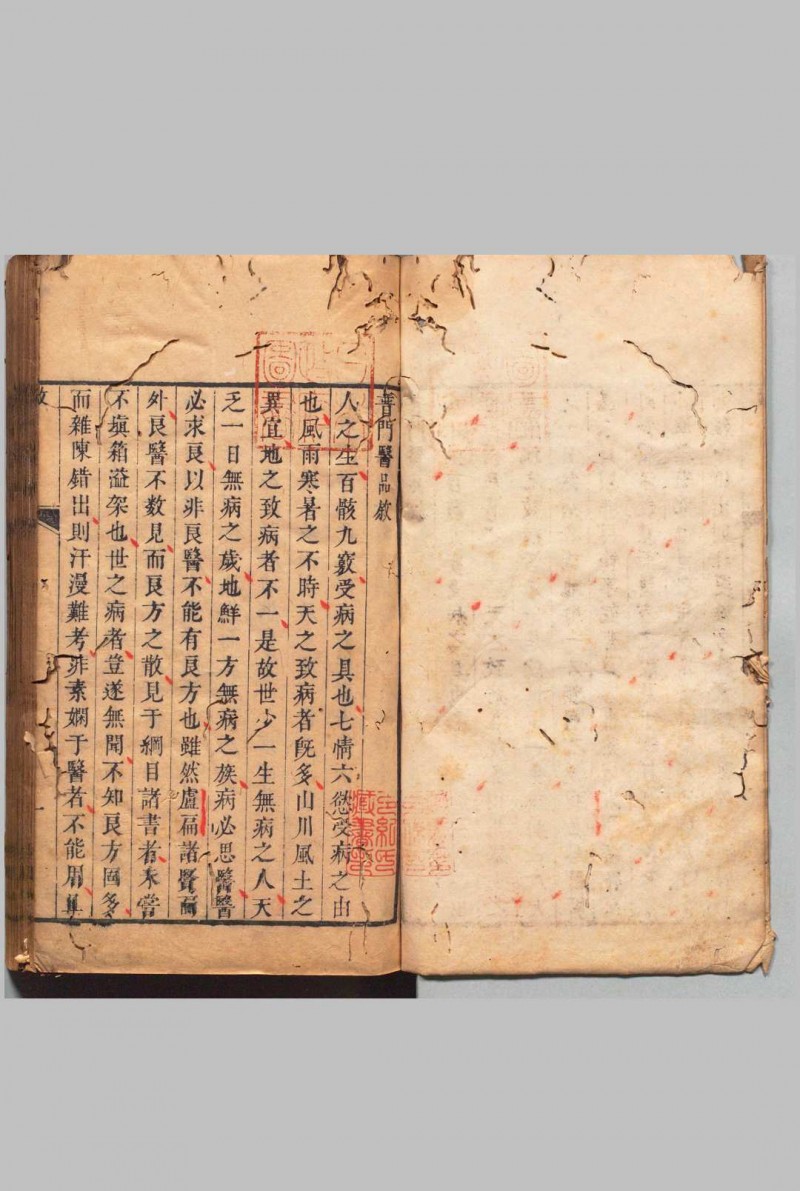 普門醫品敘
人之生百骸九竅受病之具也七情六慾受病之由
也風雨寒暑之不時天之致病者旣多山川風土之
異宜地之致病者不一是故世少一生無病之人天
乏一日無病之歲地鮮一方無病之族病必思醫醫
必求良以非良醫不能有良方也雖然盧扁諸賢而
外良醫不數見而良方之散見于綱目諸書者未嘗
不塡箱溢架也世之病者豈遂無聞不知良方固多
而雜陳錯出則汗漫難考非素嫻于醫者不能眉